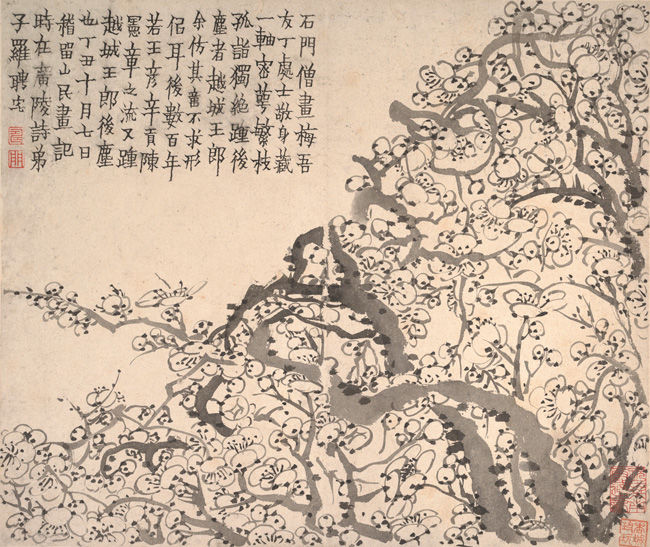 石門僧畫梅吾
友丁處士敬身藏
一軸密萼繁枝
孤詣獨絕踵後
塵者越城王郎
余仿其意不求形
佀耳後數百年
若王彥辛貢陳
憲章之流又踵
越城王郎後塵
也丁丑十月七日
稽留山民畫記
時在廣陵詩弟
子羅聘